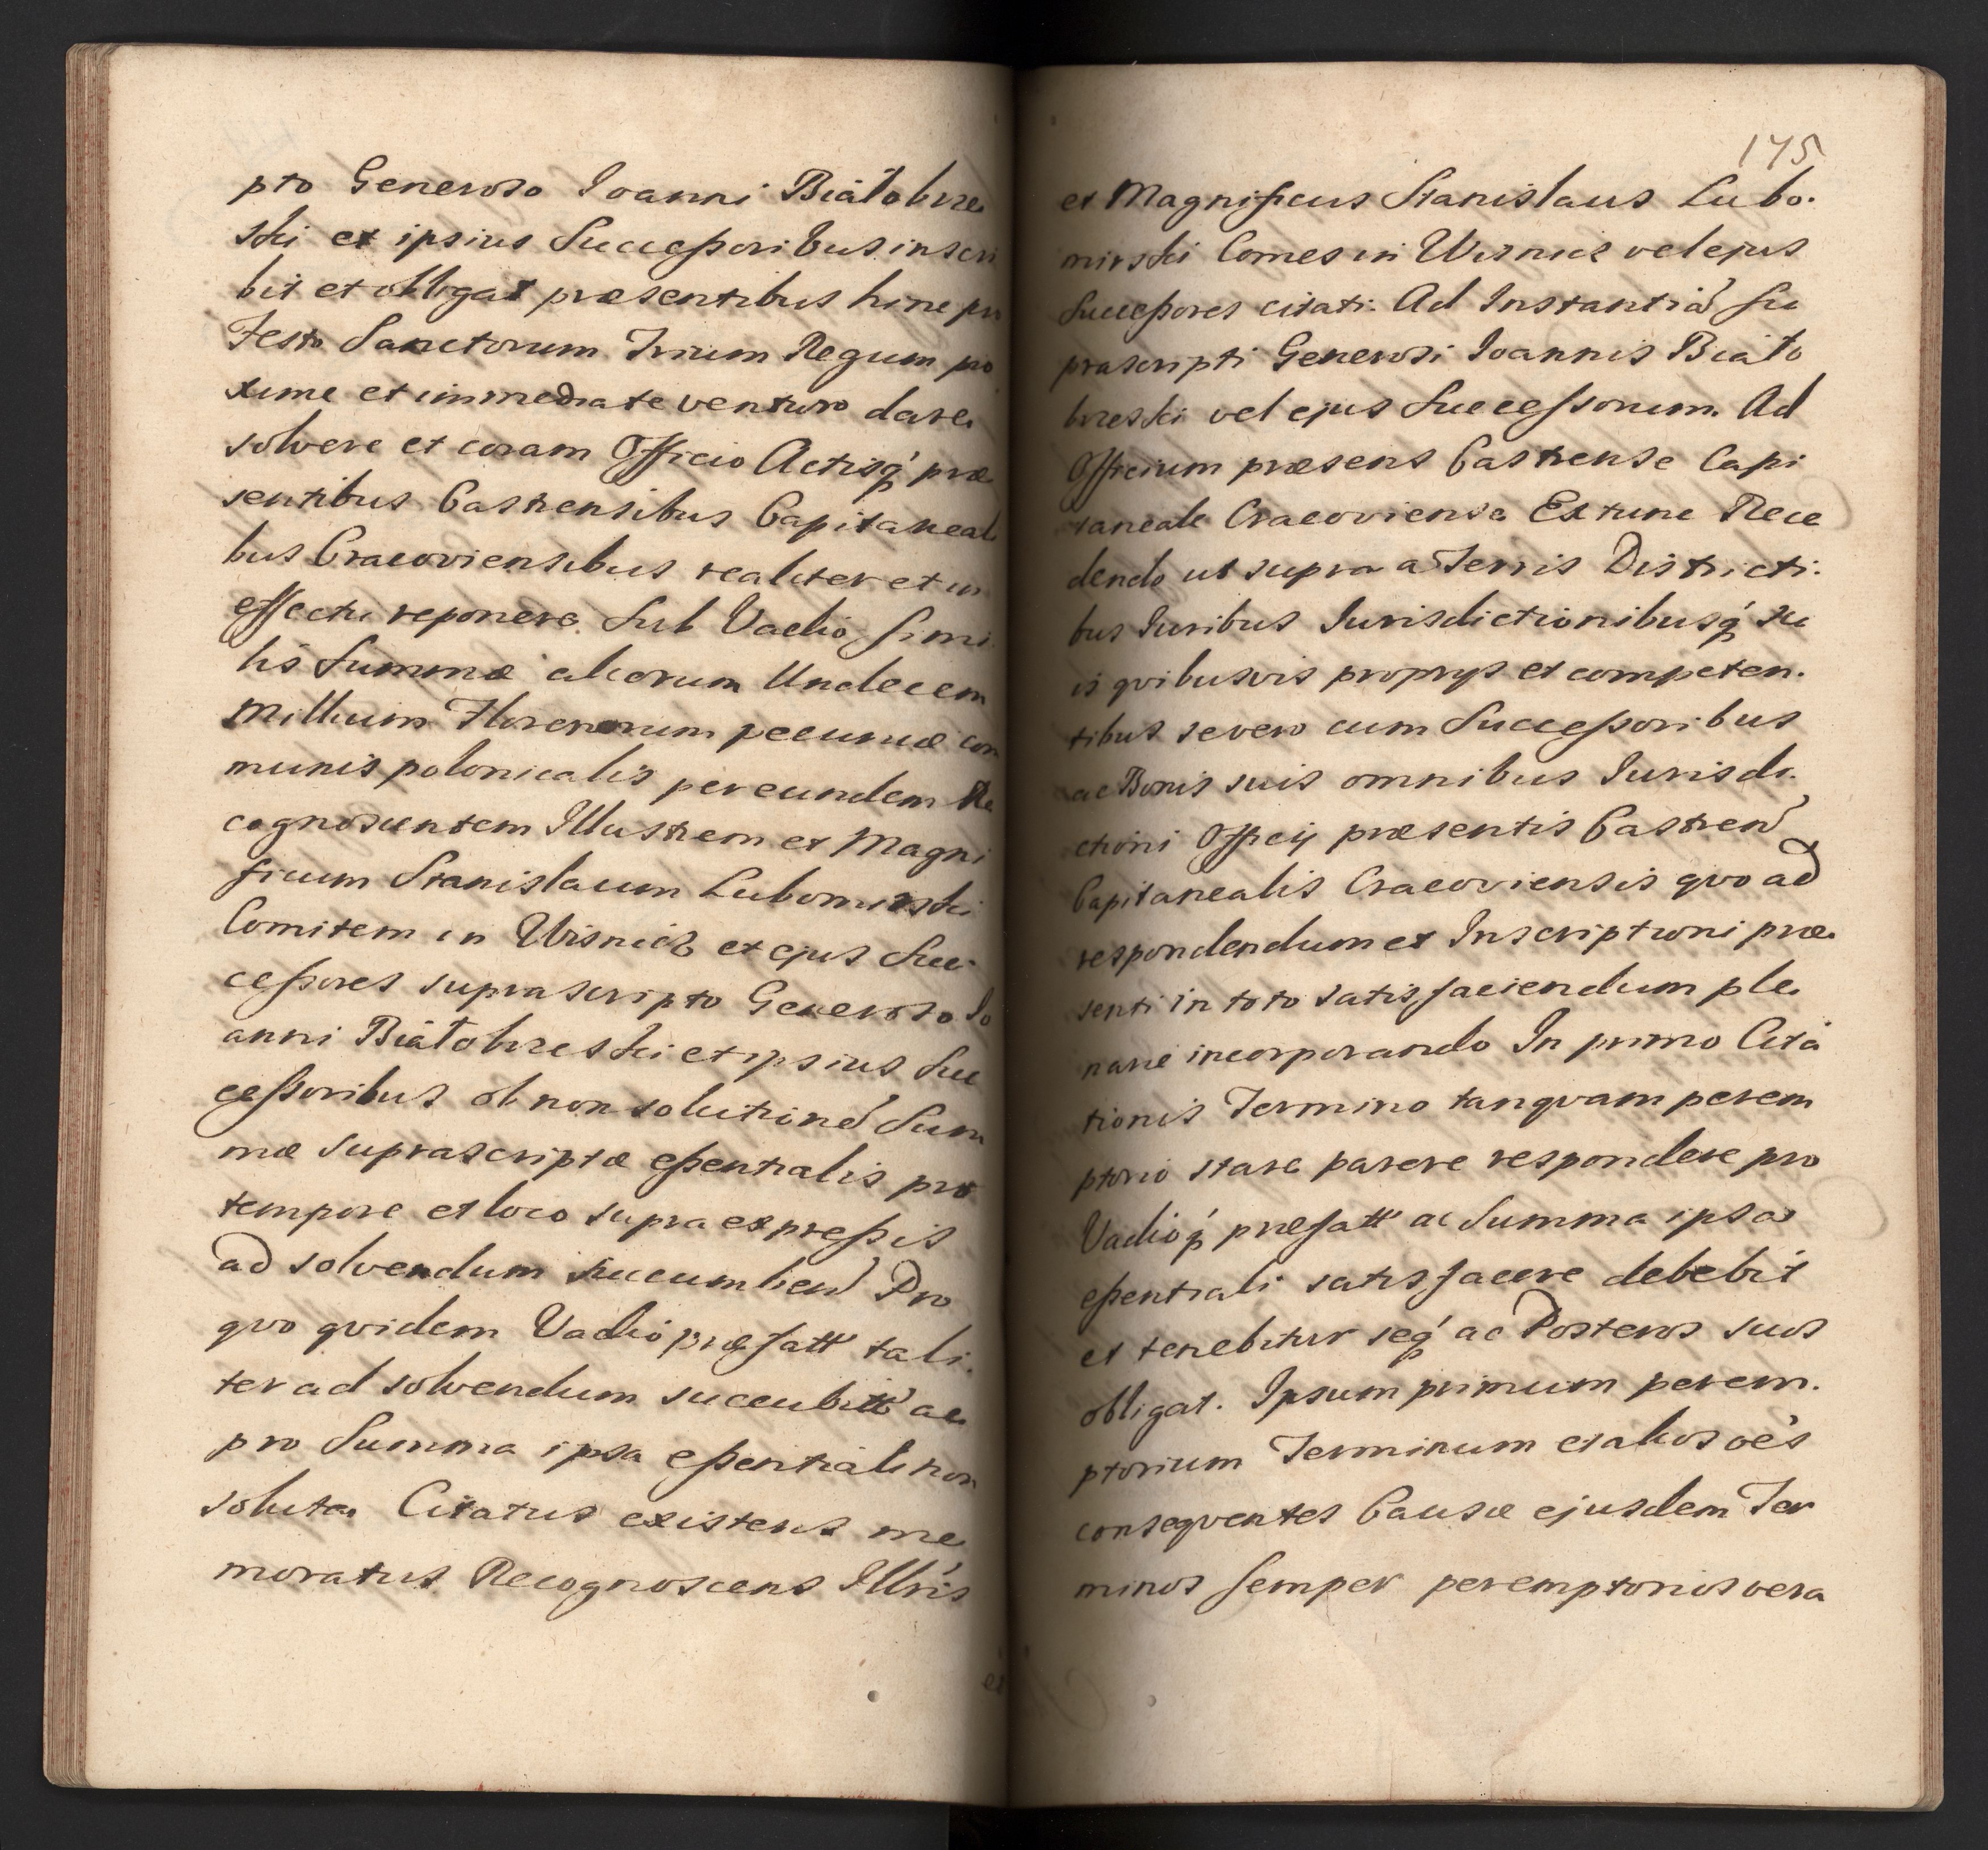 pto Generoso Joanni Białobrze
ski et ipsius Successoribus inscri
bit et obligat præsentibus hinc pro
Festo Sanctorum Trium Regum pro
xime et immediate venturo dare
solvere et coram Officio Actisq́ præ
sentibus Castrensibus Capitaneali
bus Cracoviensibus realiter et in
effectu reponere. Sub Vadio simi
lis Summæ aliorum Undecem
Millium Florenorum pecuniæ com
munis polonicalis per eundem Re
cognoscentem Illustrem et Magni
ficum Stanislaum Lubomirski
Comitem in Wisnicz et ejus Suc
cessores suprascripto Generoso Jo
anni Białobrzeski et ipsius Suc
cessoribus ob non solutionē Sum
mæ suprascriptæ essentialis pro
tempore et loco supra expressis
ad solvendum succumben̄ Pro
qvo qvidem Vadio præfatt tali
ter ad solvendum succubitt ac
pro Summa ipsa essentiali non
soluta Citatus existens me
moratus Recognoscens Illr̄is
et
175
et Magnificus Stanislaus Lubo.
mirski Comes in Wisnicz vel ejus
Successores citati. Ad Instantiā Su
prascripti Generosi Joannis Biało
brzeski vel ejus Successorum. Ad
Officium præsens Castrense Capi
taneale Cracoviense Extunc Rece
dendo ut supra a Terris Districti.
bus Juribus Jurisdictionibusq́ su
is qvibusvis proprys et competen.
tibus se vero cum Successoribus
ac Bonis suis omnibus Jurisdi.
ctioni Officij præsentis Castren̄
Capitanealis Cracoviensis qvo ad
respondendum et Inscriptioni præ
senti in toto satisfaciendum ple
narie incorporando In primo Cita
tionis Termino tanqvam perem
ptorio stare parere respondere pro
Vadioq́ præfatt ac Summa ipsa
essentiali satisfacere debebit
et tenebitur seq́ ac Posteros suos
obligat. Ipsum primum perem.
ptorium Terminum et alios oēs
conseqventes Causæ ejusdem Ter
minos semper peremptorios vera